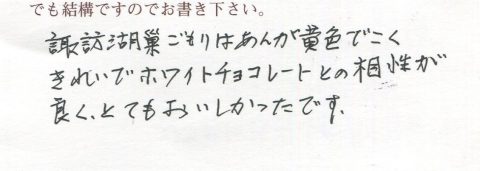 でも結構ですのでお書き下さい。
諏訪湖巣ごもりはあんが黄色でこく
きれいでホワイトチョコレートとの相性が
良く、とてもおいしかったです.